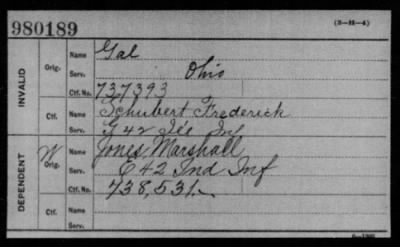 980189 (3—H—4)
INVALID
Orig. Name Gal
Serv. Ohio
Ctf. No. 737393
Ctf. Name Schubert Frederick
Serv. G 42 Ills Inf
DEPENDENT
W Orig. Name Jones Marshall
Serv. C 42 Ind Inf
Ctf. No. 738,531
Ctf. Name
Serv.